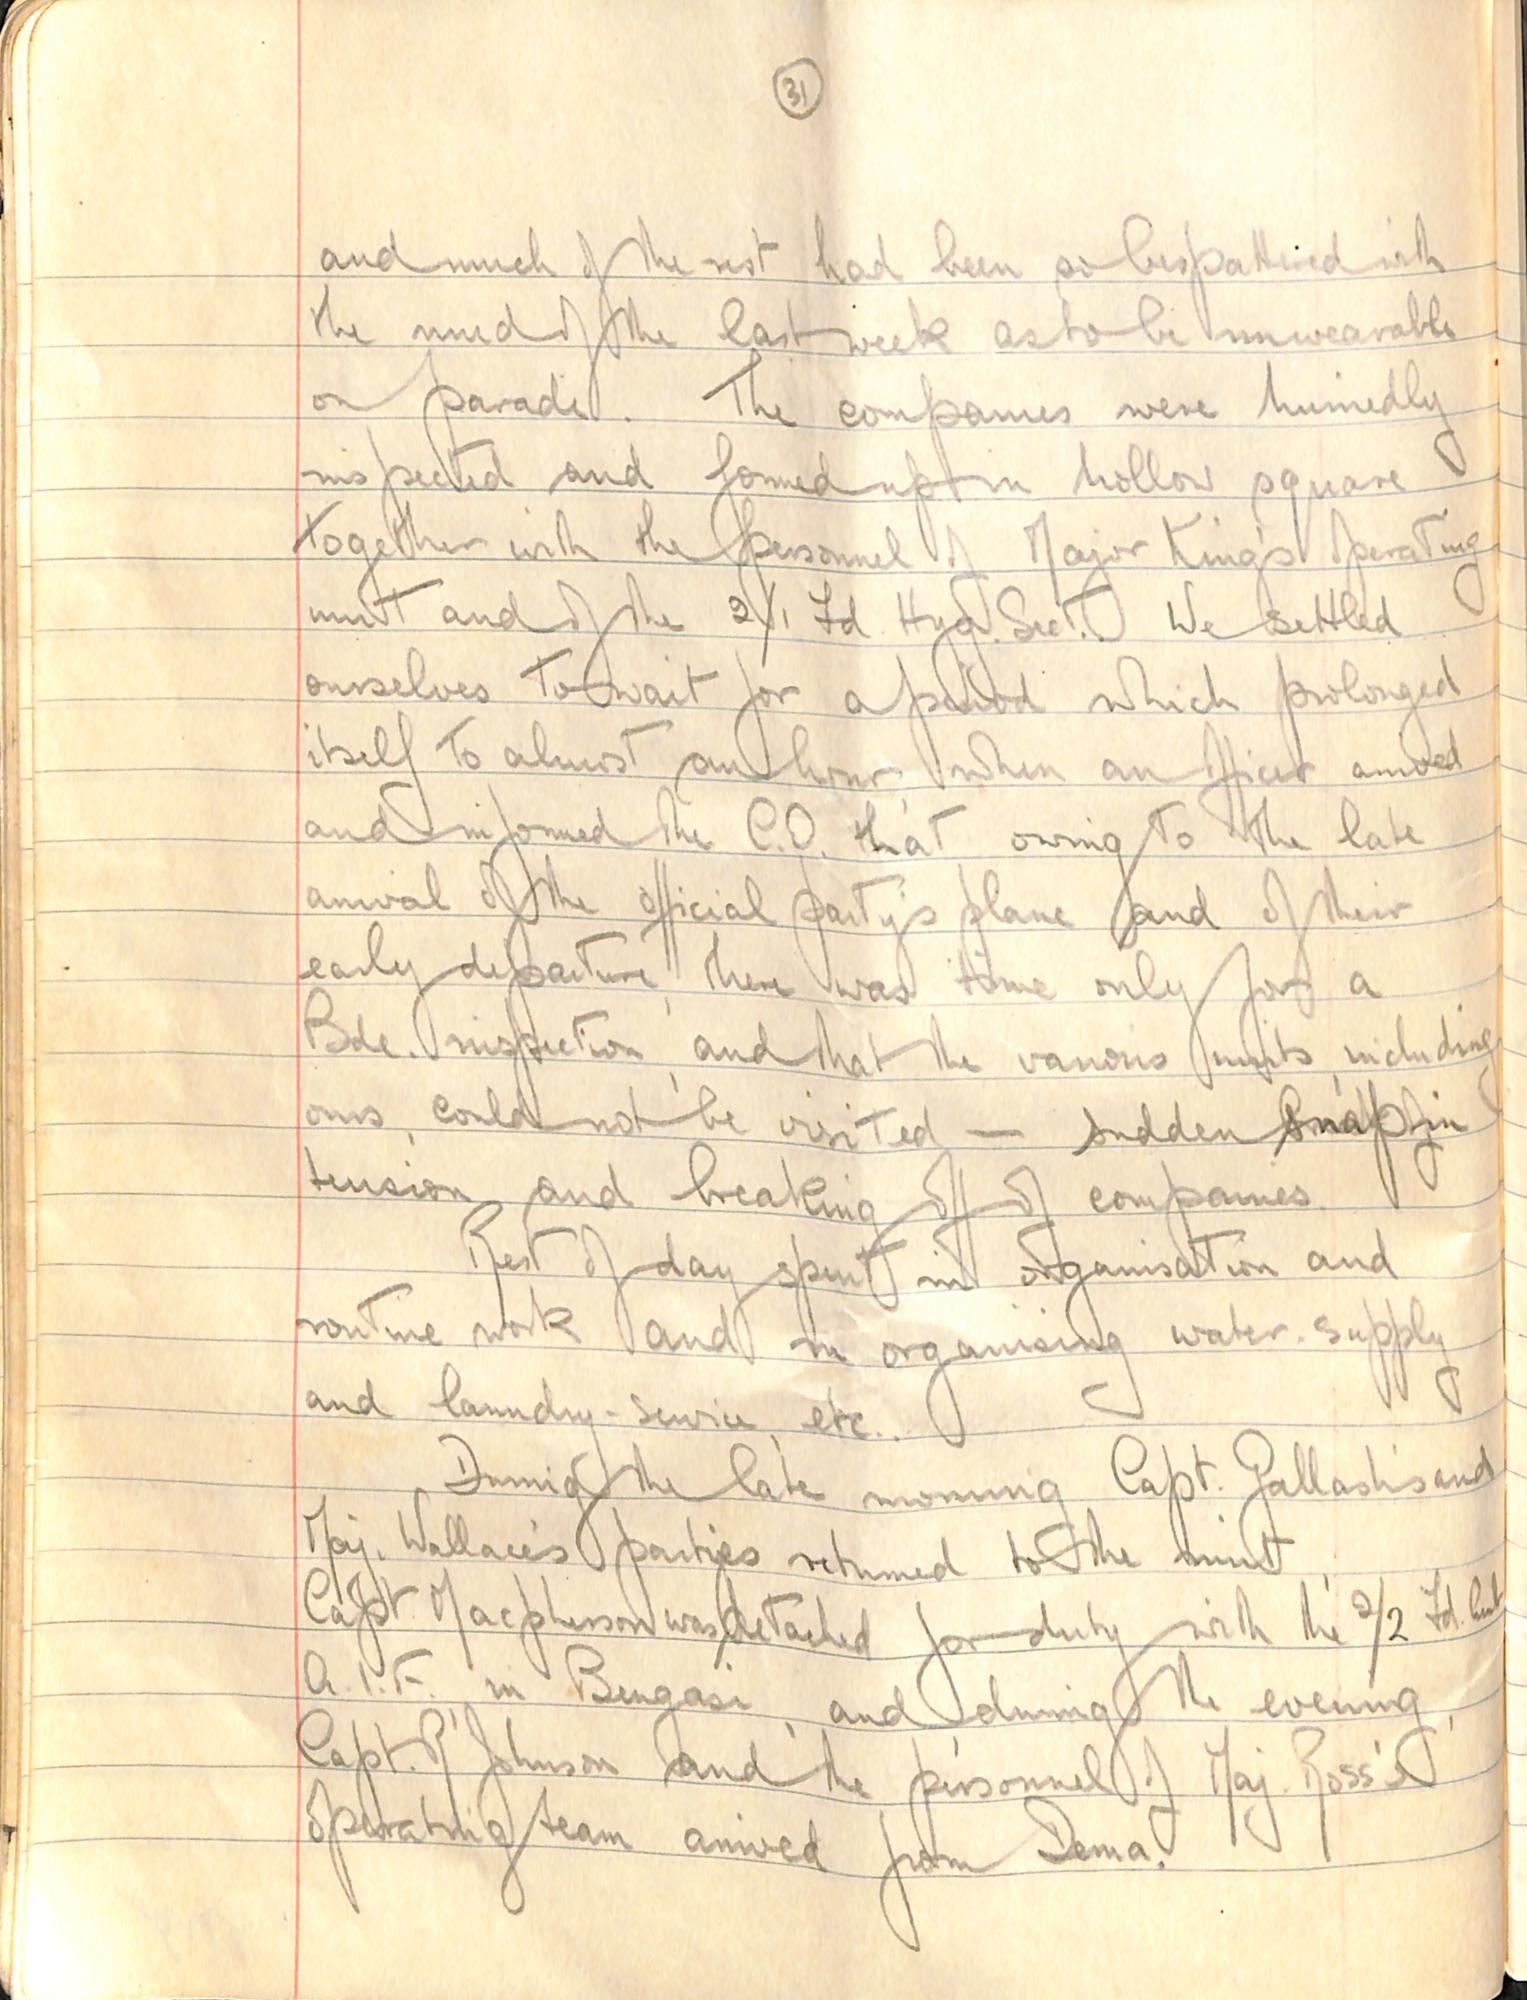 31
and much of the rest had been so bespattered with
the mud of the last week as to be unwearable
on parade. The companies were hurriedly
inspected and formed up in hollow square
together with the personnel of Major King's operating
unit and of the 2/1 Fd. Hyg. Sect. We settled
ourselves to wait for a period which prolonged
itself to almost an hour, when an officer arrived
and informed the C.O. that owing to the late
arrival of the official party's plane and of their
early departure, there was time only for a
Bde. inspection, and that the various units, including
ours, could not be visited — sudden snap in
tension and breaking off of companies.
Rest of day spent in organisation and
routine work and in organising water-supply
and laundry-service, etc..
During the late morning Capt. Gallash's and
Maj. Wallace's parties returned to the unit.
Capt. Macpherson was detached for duty with the 2/2 Fd.
A.I.F. in Bengasi, and during the evening,
Capt. R. Johnson and the personnel of Maj. Ross's
operating team arrived from Derna.